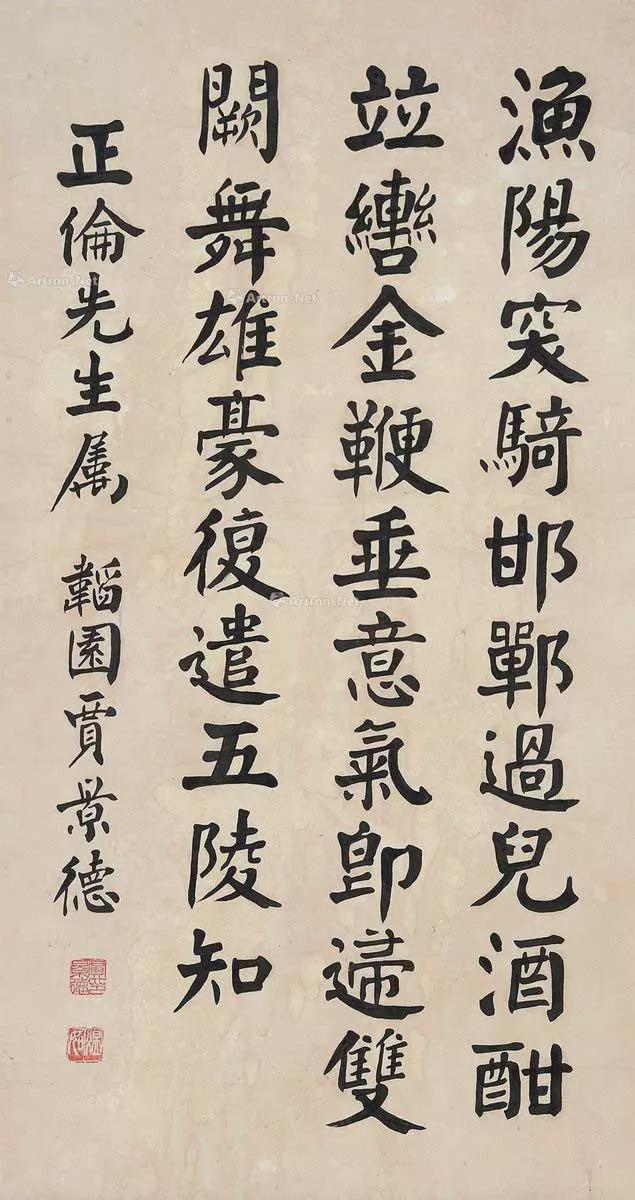 漁陽突騎邯鄲過兒酒酣
竝轡金鞭垂意氣卽歸雙
闕舞雄豪復遣五陵知
正倫先生屬 韜園賈景德
Artron.Net
Artron.Net
Artron.Net